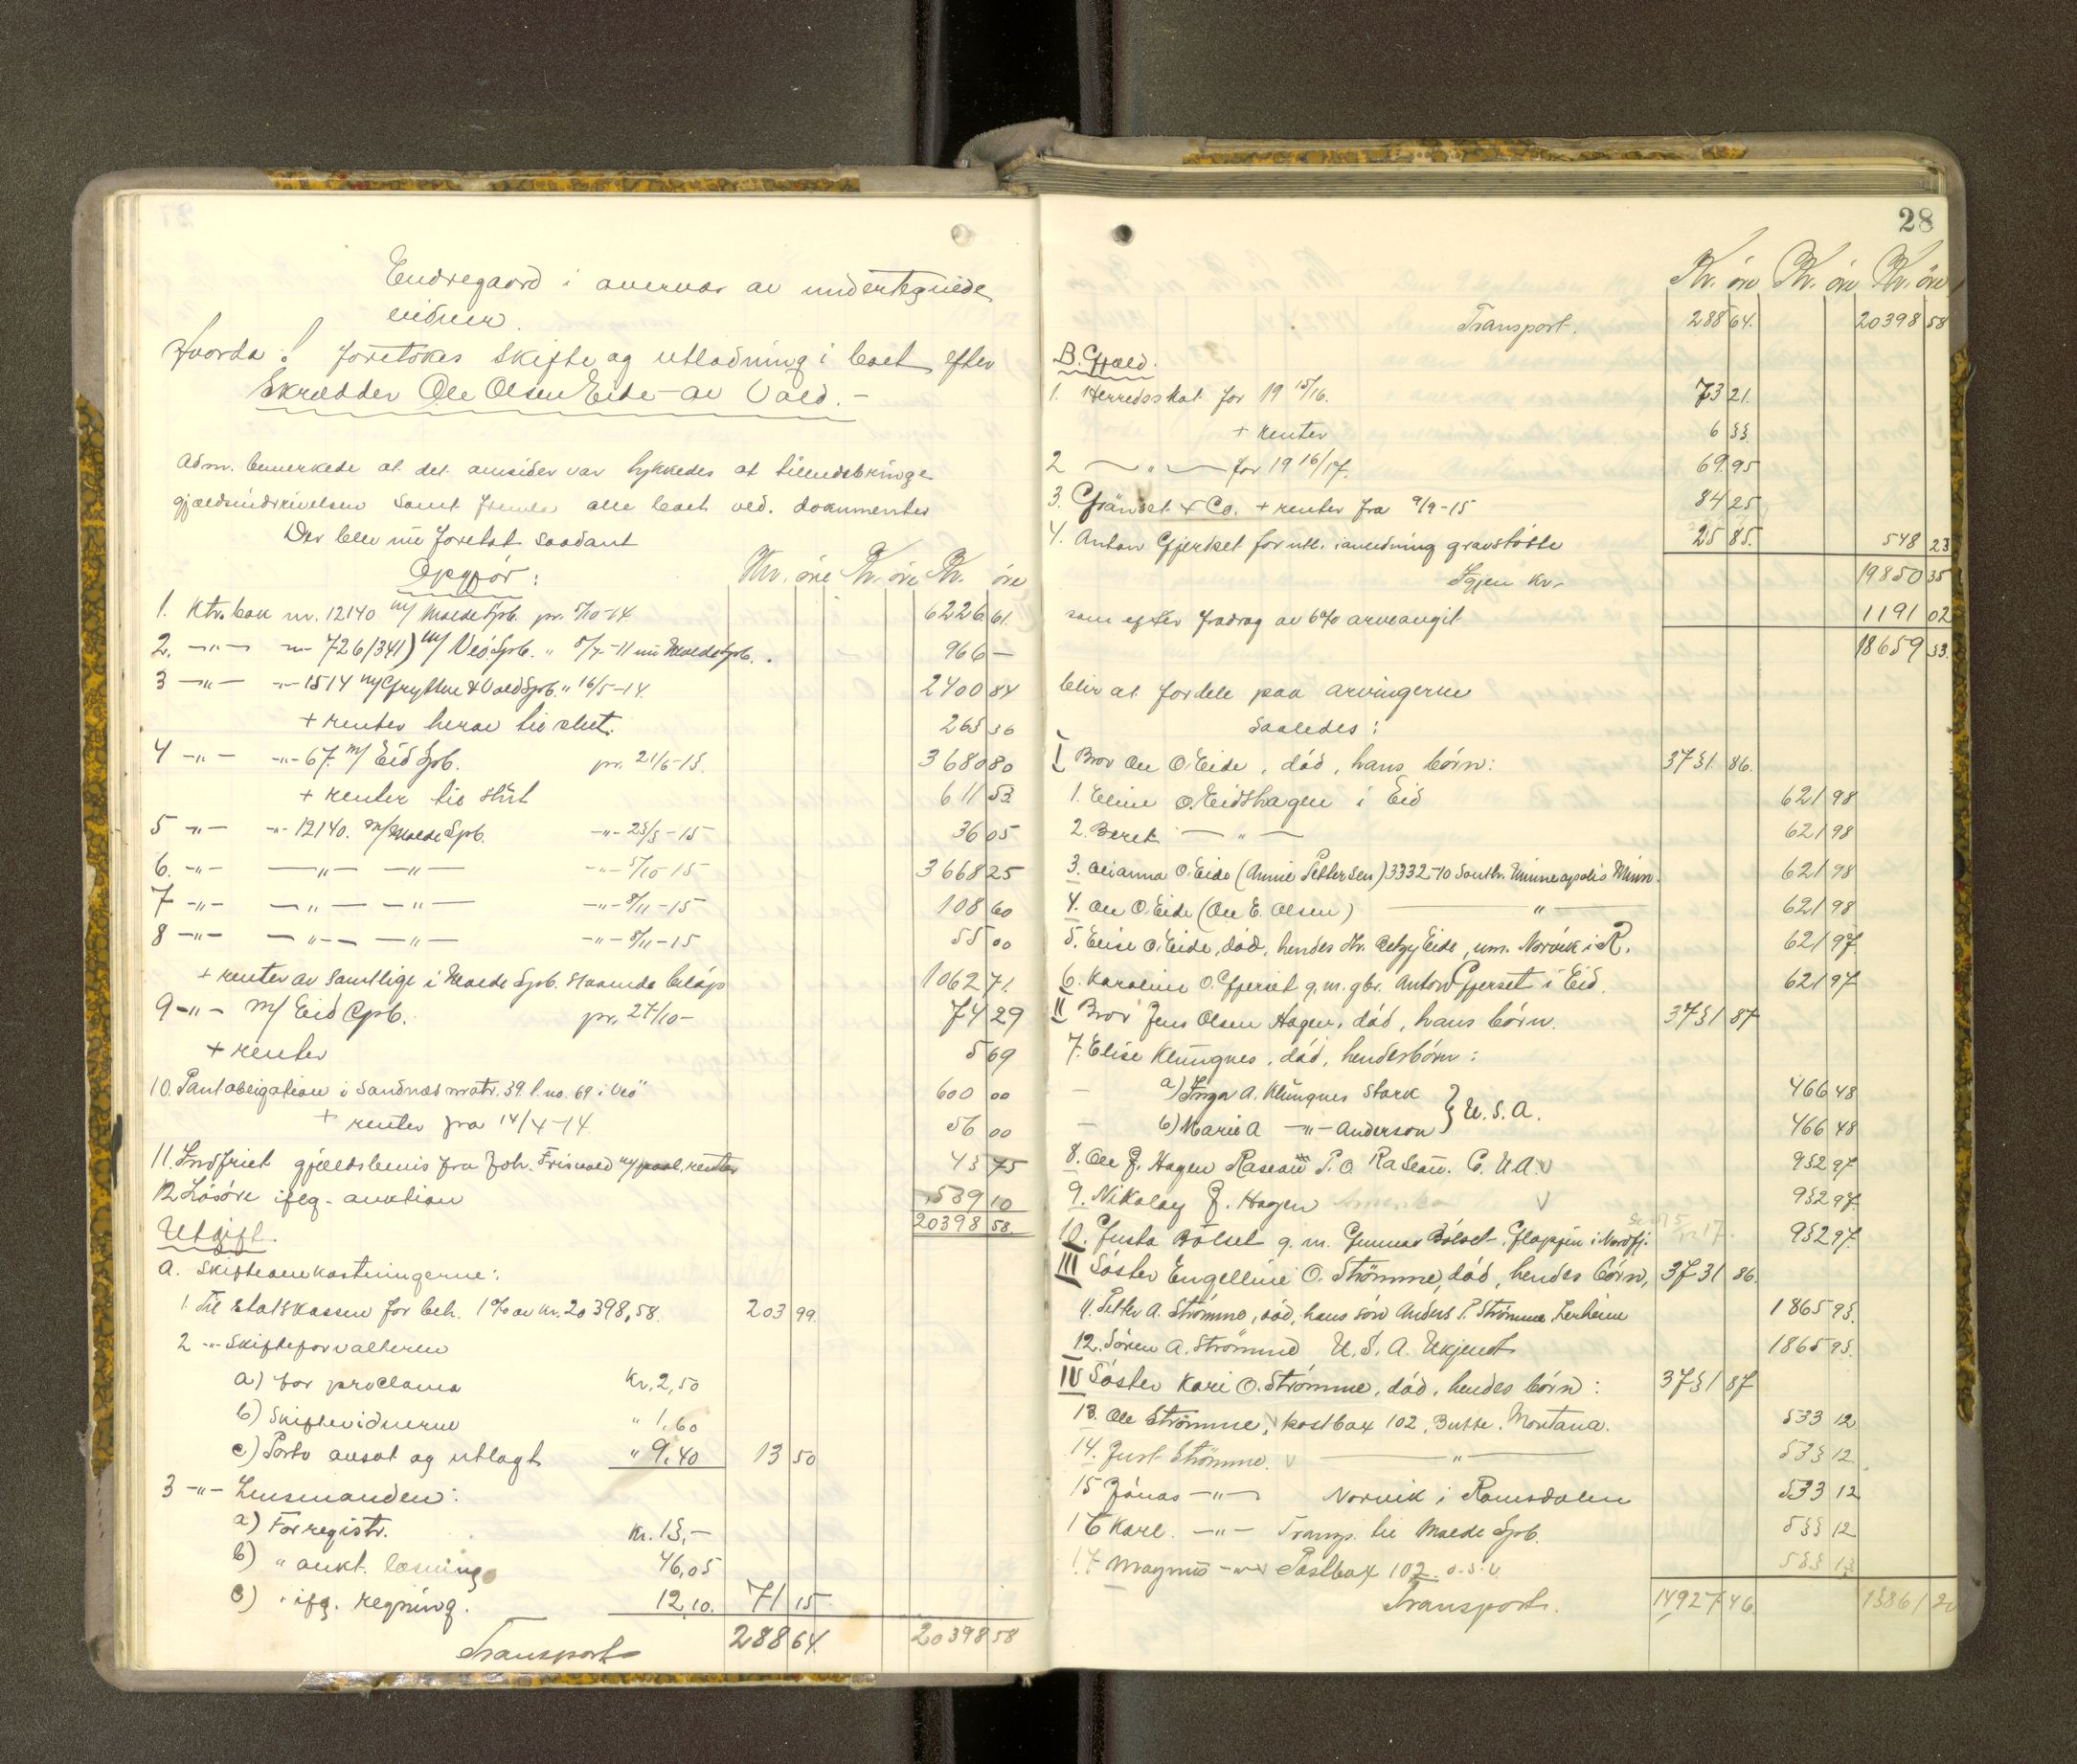 Endregaard i overvær av undertegnede
vidner.
Hvorda! foretokes skifte og utlodning i boet efter
Skrædder Ole Olsen Eide av Vold. -
Adm. bemerkede at det omsider var lykkedes at tilendebringe
gjældsinddrivelsen samt alle boet ved. dokumenter
Der blev nu foretat saadant
Opgjør: Kr. øre Kr. øre Kr. øre
1. Ktr.bok nr. 12140 m/ Molde Spb. pr. 5/10-14. 6226 61
2. -"- -"- 726/341) m/ Veö Spb. " 5/7-11 nu Molde Spb. 966 -
3 -"- -"- 1514 m/ Grytten & Vold Spb. " 16/5-14. 2400 84
+ renter herav til slut. 265 36
4 -"- -"- 67. m/ Eid Spb. pr. 21/6-15. 3680 80
+ renter til slut 611 53
5 -"- -"- 12140. m/ Molde Spb. -"- 25/3-15 36 05
6. -"- -"- -"- -"- 5/10-15 3668 25
7 -"- -"- -"- -"- 8/11-15 108 60
8 -"- -"- -"- -"- 8/11-15 55 00
+ renter av samtlige i Molde Spb. staaende beløp 1062 71.
9 -"- m/ Eid Spb. pr. 27/10- 74 29
+ renter 5 69
10. Pantobligation i Sandnes matr. 39. l. no. 69 i Veö 600 00
+ renter fra 14/4-14. 56 00
11. Indfriet gjældsbevis fra Joh. Frisvold m/ paal. renter 43 75
12 Løsøre ifølg. auktion 539 10
20398 58.
Utgift.
A. Skifteomkostningerne:
1. Til statskassen for beh. 1% av kr. 20398,58. 203 99.
2 -"- Skifteforvalteren
a) for proclama Kr. 2,50
b) Skiftevidnerne " 1,60
c) Porto ansat og utlagt " 9.40 13 50
3 -"- Lensmanden:
a) For registr. Kr. 13,-
b) " aukt. løsning 46,05
c) " ifg. regning. 12,10. 71 15
Transport 288 64. 20398 58
28
Kr. øre Kr. øre Kr. øre
Transport. 288 64. 20398 58
B. Gjæld.
1. Herredsskat for 19 15/16. 73 21.
+ renter 6 33
2 -"- for 19 16/17. 69. 95
3. Grönset & Co. + renter fra 9/9-15 84 25
4. Anton Gjerdset for utl. i anledning gravstøtte 25 85. 548 23
Igjen kr. 19850 35
som efter fradrag av 6% arveavgit 1191 02
18659 33.
blir at fordele paa arvingerne
saaledes:
I Bror Ole O. Eide, død, hans børn: 3731. 86.
1. Eline O. Eidshagen i Eid 621 98
2. Beret -"- 621 98
3. Olianna O. Eide (Annie Pettersen) 3332-10 South. Minneapolis Minn. 621 98
4. Ole O. Eide (Ole E. Olsen) -"- 621 98
5. Elise O. Eide, død, hendes dtr. Betzy Eide, um. Norvik i R. 621 97.
6. Karoline O. Gjerset g. m. gbr. Anton Gjerset i Eid. 621 97
II Bror Jens Olsen Hagen, død, hans børn. 3731 87
7. Elise Klungnes, død, hendes børn:
a) Inga A. Klungnes Stark } U. S. A. 466 48
b) Marie A -"- Anderson 466 48
8. Ole J. Hagen Raseau P. O. Raseau. C. U A. V 932 97
9. Nikolay J. Hagen Amerika V 932 97
10. Justa Bölset g. m. Gunnar Bölset i Nordfj. 932 97.
III Søster Engelline O. Strömme, død, hendes børn, 3731 86.
11. Petter A. Strömme, død, hans søn Anders P. Strömme Lerheim 1865 93.
12. Sören A. Strömme U. S. A. Ukjendt 1865 93.
IV Søster Kari O. Strømme, død, hendes børn: 3731 87
13. Ole Strömme, V Postbox 102, Butte. Montana. 533 12
14. Just Strömme. V -"- 533 12
15 Jónas -"- Norvik i Romsdalen 533 12
16 Karl. -"- Transp. til Molde Spb. 533 12
17 Magnus -"- Postbox 102. o. s. v. 533 13
Transport. 14927 46 13861 20